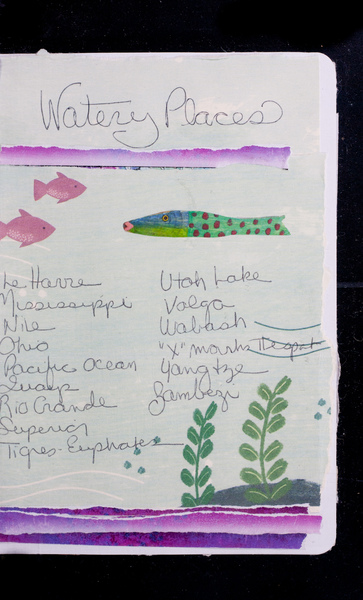 Watery Places
Le Havre
Mississippi
Nile
Ohio
Pacific Ocean
Rio Grande
Superior
Tigres-Euphates
Utah Lake
Volga
Wabash
"X" marks
Yangtze
Zambezi